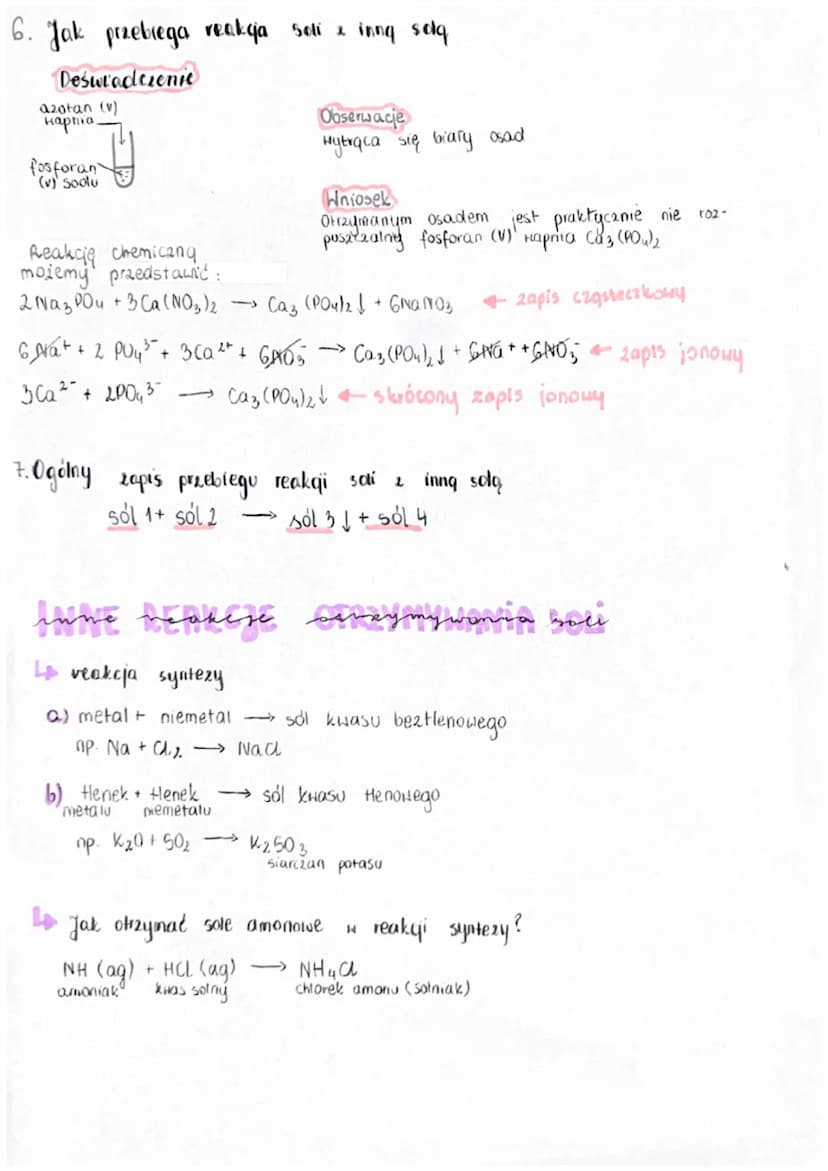 6. Jak przebiega reakcja soli z inną solą
Doświadczenie
azotan (V)
wapnia
fosforan
(V) sodu
Obserwacje
Wytrąca się biały osad
Wniosek
Otrzymanym osadem jest praktycznie nie roz-
puszczalny fosforan (V) wapnia Ca₃(PO₄)₂
Reakcję chemiczną
możemy przedstawić:
2 Na₃PO₄ + 3 Ca(NO₃)₂ → Ca₃(PO₄)₂↓ + 6NaNO₃ ← zapis cząsteczkowy
6Na⁺ + 2 PO₄³⁻ + 3Ca²⁺ + 6NO₃⁻ → Ca₃(PO₄)₂↓ + 6Na⁺ + 6NO₃⁻ ← zapis jonowy
3Ca²⁻ + 2PO₄³⁻ → Ca₃(PO₄)₂↓ ← skrócony zapis jonowy
7. Ogólny zapis przebiegu reakcji soli z inną solą
sól 1 + sól 2 → sól 3↓ + sól 4
INNE REAKCJE OTRZYMYWANIA SOLI
↳ reakcja syntezy
a) metal + niemetal → sól kwasu beztlenowego
np. Na + Cl₂ → NaCl
b) tlenek + tlenek → sól kwasu tlenowego
metalu niemetalu
np. K₂O + SO₂ → K₂SO₃
siarczan potasu
↳ Jak otrzymać sole amonowe w reakcji syntezy?
NH (ag) + HCl (ag) → NH₄Cl
amoniak kwas solny chlorek amonu (salmiak)